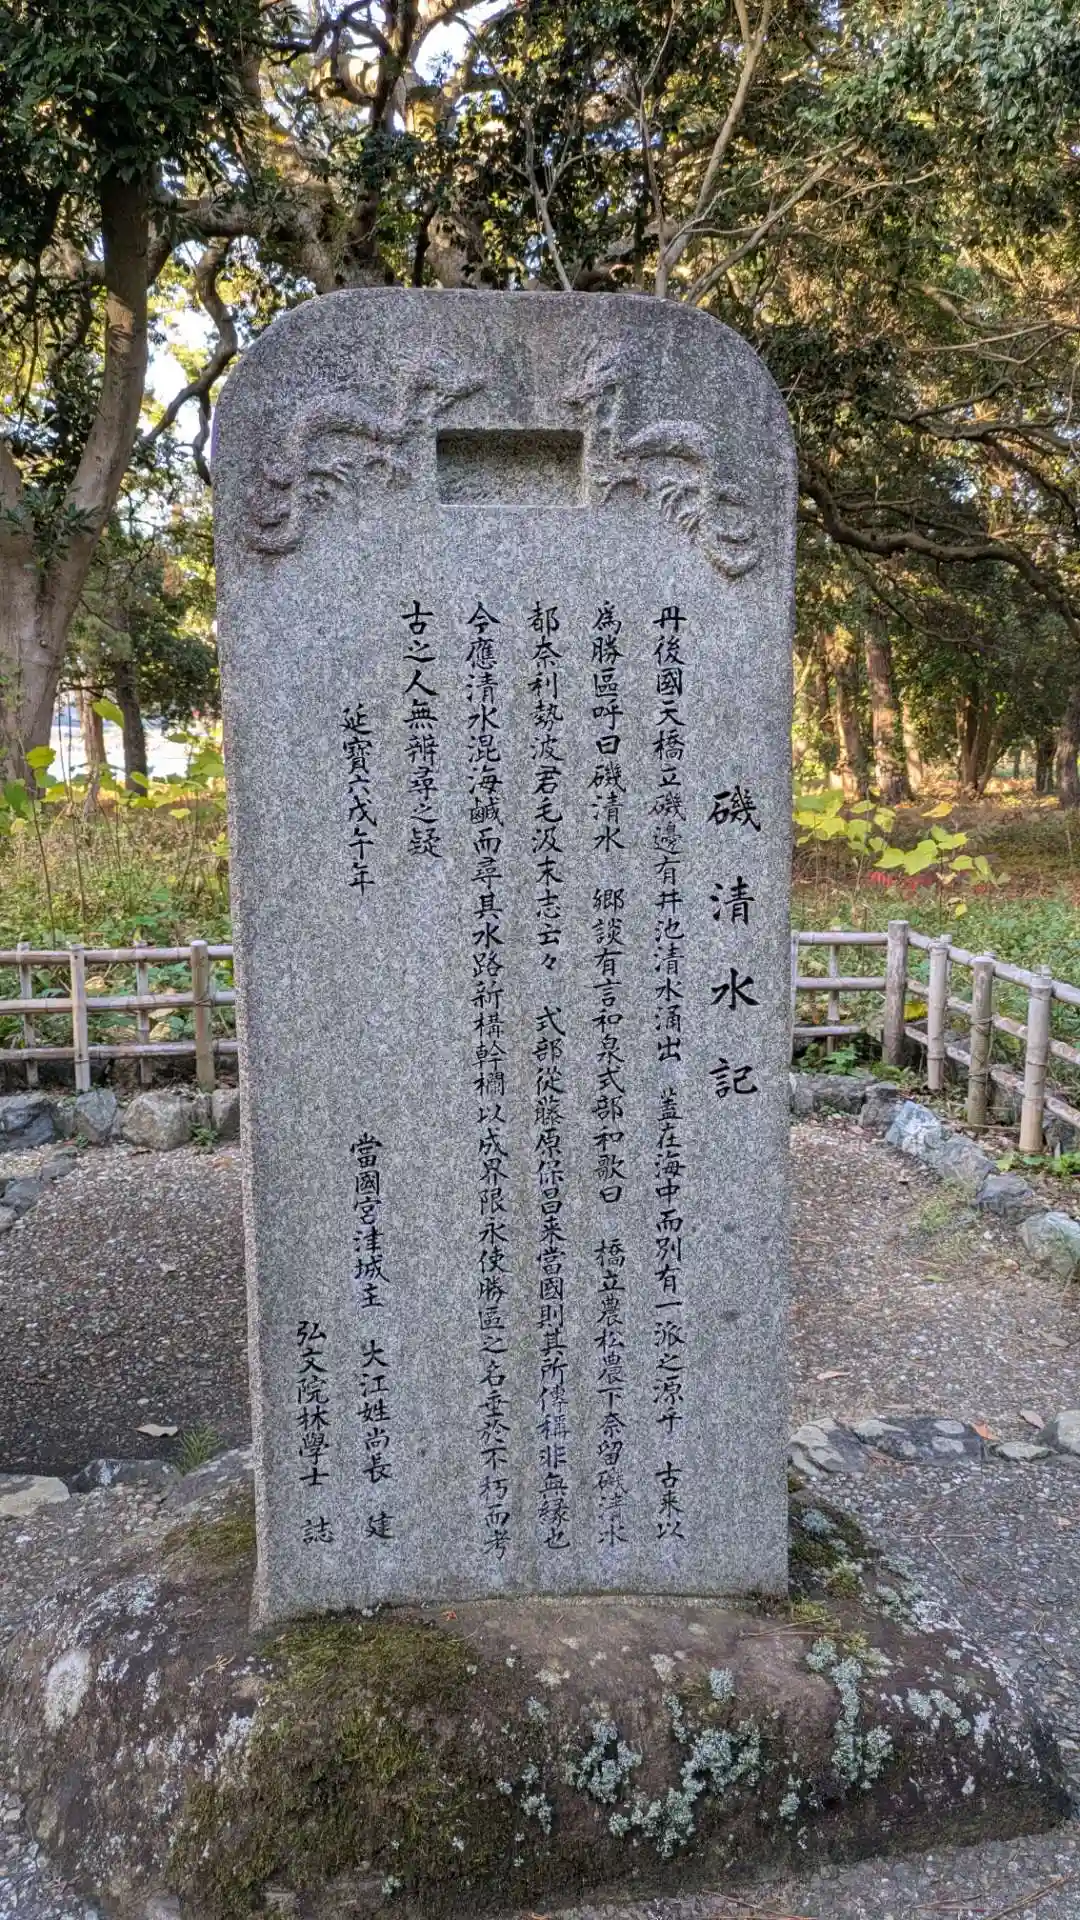 磯清水記
丹後國天橋立磯邊有井池清水涌出 蓋在海中而別有一派之源乎 古来以
爲勝區呼曰磯清水 郷談有言和泉式部和歌曰 橋立農松農下奈留磯清水
都奈利勢波君毛汲末志云々 式部從藤原保昌来當國則其所傳稱非無縁也
今應清水混海鹹而尋其水路新構幹欄以成界限永使勝區之名垂於不朽而考
古之人無辨尋之疑
延寶六戊午年
當國宮津城主 大江姓尚長 建
弘文院林學士 誌